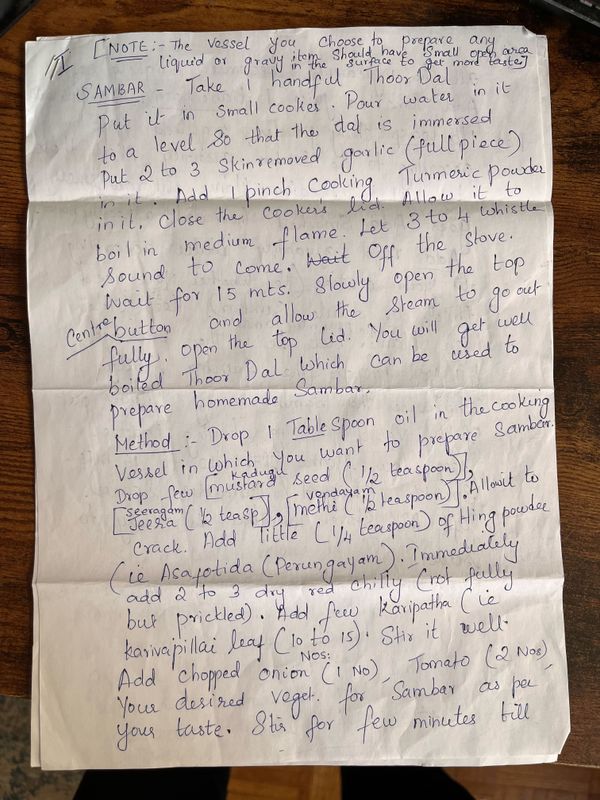 II [NOTE:- The vessel you choose to prepare any
liquid or gravy item should have small open area
in the surface to get more taste]
SAMBAR - Take 1 handful Thoor Dal
Put it in small cooker. Pour water in it
to a level so that the dal is immersed
Put 2 to 3 skinremoved garlic (full piece)
in it. Add 1 pinch cooking Turmeric powder
in it. Close the cooker's lid. Allow it to
boil in medium flame. Let 3 to 4 whistle
sound to come. Wait Off the stove.
Wait for 15 mts. Slowly open the top
Centre button and allow the steam to go out
fully. Open the top lid. You will get well
boiled Thoor Dal which can be used to
prepare homemade Sambar.
Method :- Drop 1 Table spoon oil in the cooking
vessel in which you want to prepare Sambar.
Kadugu
Drop few [mustard seed (1/2 teaspoon)],
seeragam vendayam
[Jeera (1/2 teasp], [methi (1/2 teaspoon)]. Allow it to
crack. Add little (1/4 teaspoon) of Hing powder
(ie Asafotida (Perungayam). Immediately
add 2 to 3 dry red chilly (not fully
but prickled). Add few Karipatha (ie
karivapillai leaf (10 to 15). Stir it well.
Nos:
Add chopped onion (1 No), Tomato (2 Nos),
Your desired veget. for Sambar as per
your taste. Stir for few minutes till